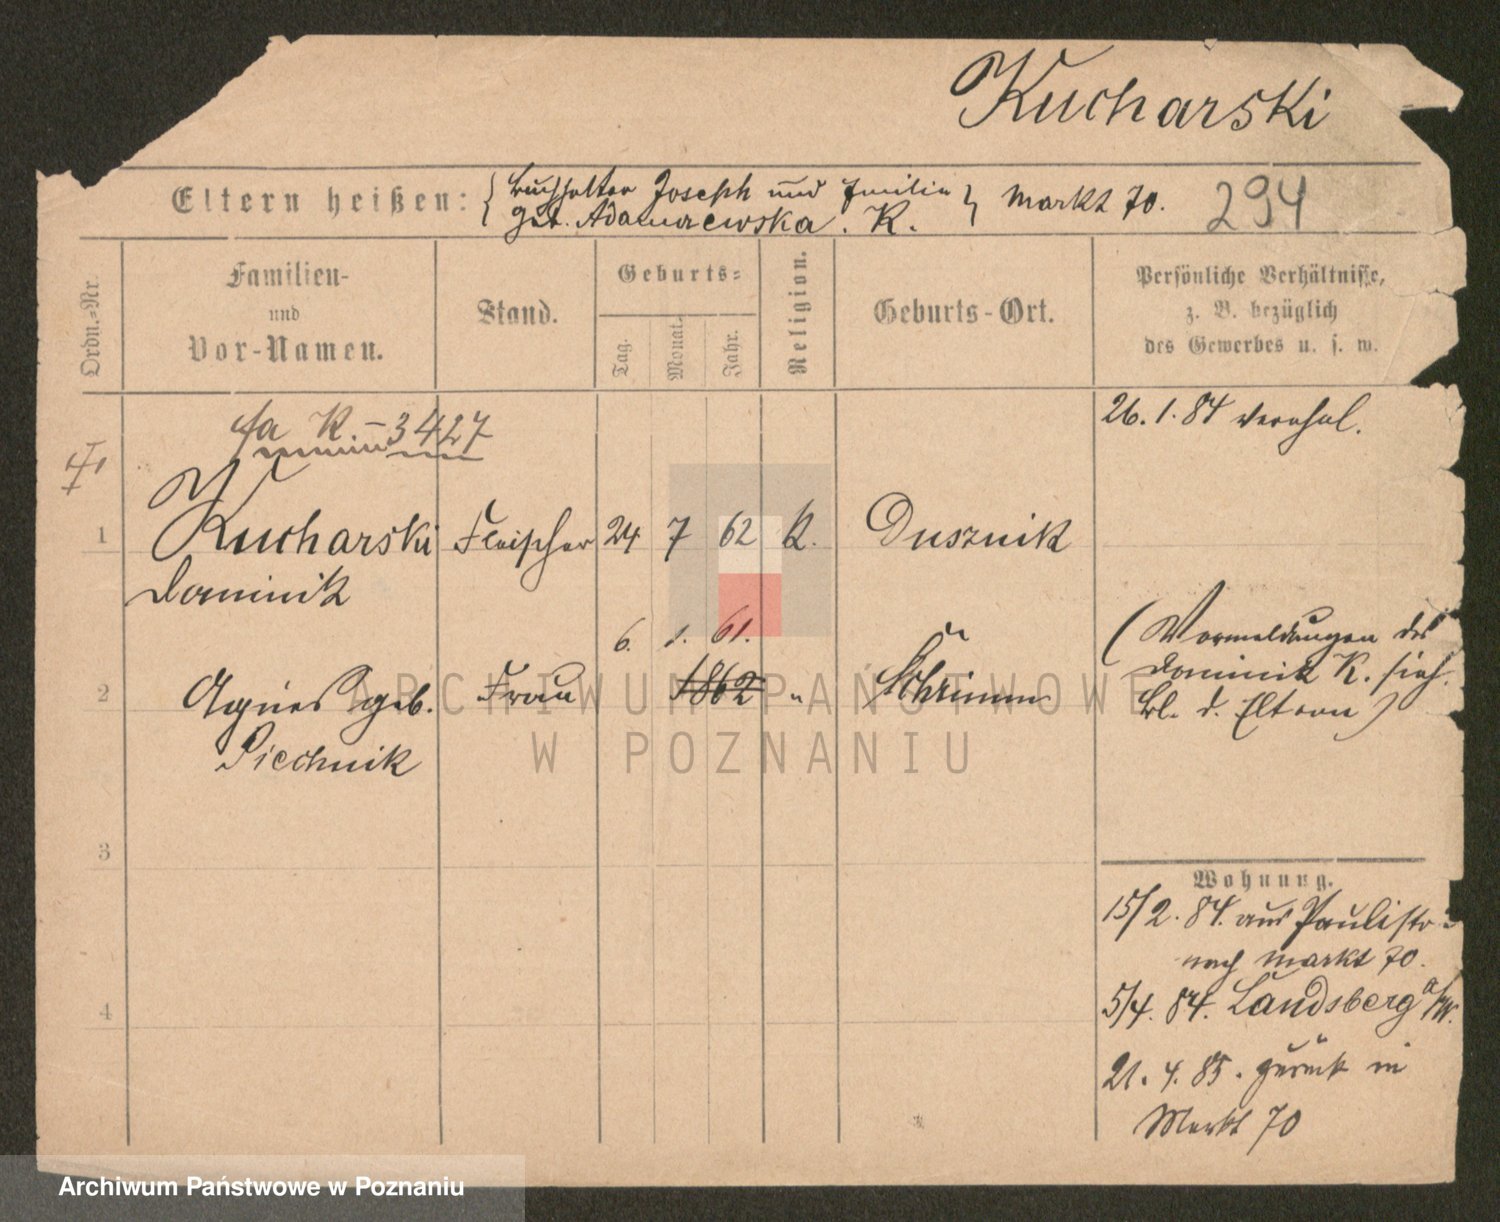 Kucharski
Eltern heißen: { Buchhalter Joseph und Emilie } Markt 70. 294
geb. Adamczewska. K.
Ordn.-Nr.
Familien- und Vor-Namen.
Stand.
Geburts-
Tag. Monat. Jahr.
Religion.
Geburts-Ort.
Persönliche Verhältnisse,
z. B. bezüglich
des Gewerbes u. s. w.
fa K - 3427
26. 1. 84 verehel.
1 Kucharski Fleischer 24 7 62 K. Dusznik
Dominik
6. 1. 61.
2 Agnes geb. Frau 1862 " Schrimm
Piechnik
(Vormeldungen des
Dominik K. sieh.
Bl. d. Eltern)
3
4
Wohnung.
15/2. 84. aus Paulistr:
nach Markt 70.
5/4. 84. Landsberg a/W.
21. 4. 85. zurück in
Markt 70
ARCHIWUM PAŃSTWOWE
W POZNANIU
Archiwum Państwowe w Poznaniu